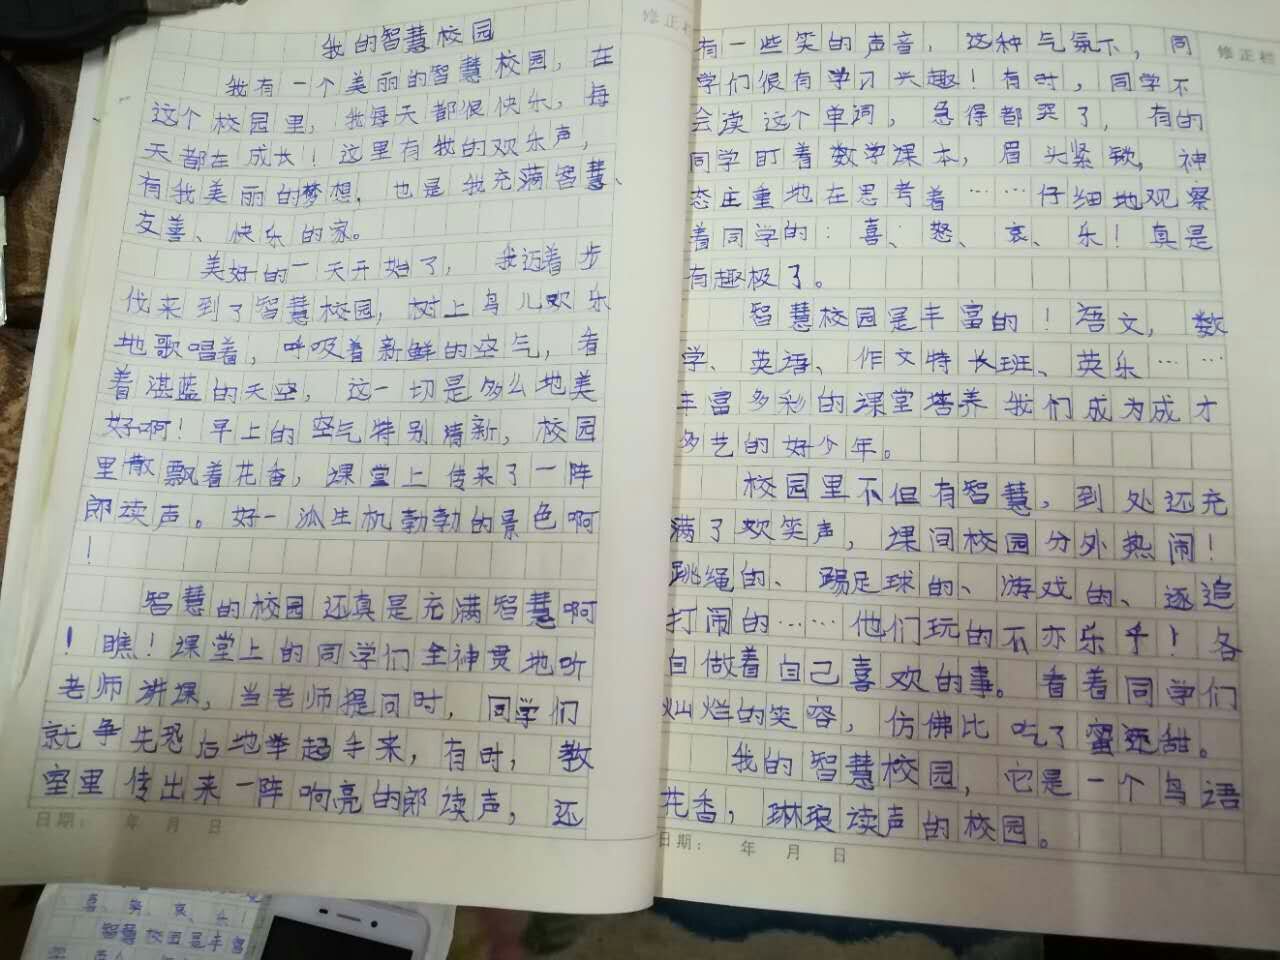 我的智慧校园
我有一个美丽的智慧校园，在
这个校园里，我每天都很快乐，每
天都在成长！这里有我的欢乐声，
有我美丽的梦想，也是我充满智慧、
友善、快乐的家。
美好的一天开始了，我迈着步
伐来到了智慧校园，树上鸟儿欢乐
地歌唱着，呼吸着新鲜的空气，看
着湛蓝的天空，这一切是多么地美
好啊！早上的空气特别清新，校园
里散飘着花香，课堂上传来了一阵
郎读声。好一派生机勃勃的景色啊
！
智慧的校园还真是充满智慧啊
！瞧！课堂上的同学们全神贯地听
老师讲课，当老师提问时，同学们
就争先恐后地举起手来，有时，教
室里传出来一阵响亮的郎读声，还
日期： 年 月 日
修正栏
有一些笑的声音，这种气氛下，同
学们很有学习兴趣！有时，同学不
会读这个单词，急得都哭了，有的
同学盯着数学课本，眉头紧锁，神
态庄重地在思考着……仔细地观察
着同学的：喜、怒、哀、乐！真是
有趣极了。
智慧校园是丰富的！语文，数
学、英语、作文特长班、英乐……
丰富多彩的课堂培养我们成为成才
多艺的好少年。
校园里不但有智慧，到处还充
满了欢笑声，课间校园分外热闹！
跳绳的、踢足球的、游戏的、逐追
打闹的……他们玩的不亦乐乎！各
自做着自己喜欢的事。看着同学们
灿烂的笑容，仿佛比吃了蜜还甜。
我的智慧校园，它是一个鸟语
花香，琳琅读声的校园。
日期： 年 月 日
修正栏
喜、怒、哀、乐
智慧校园是丰富